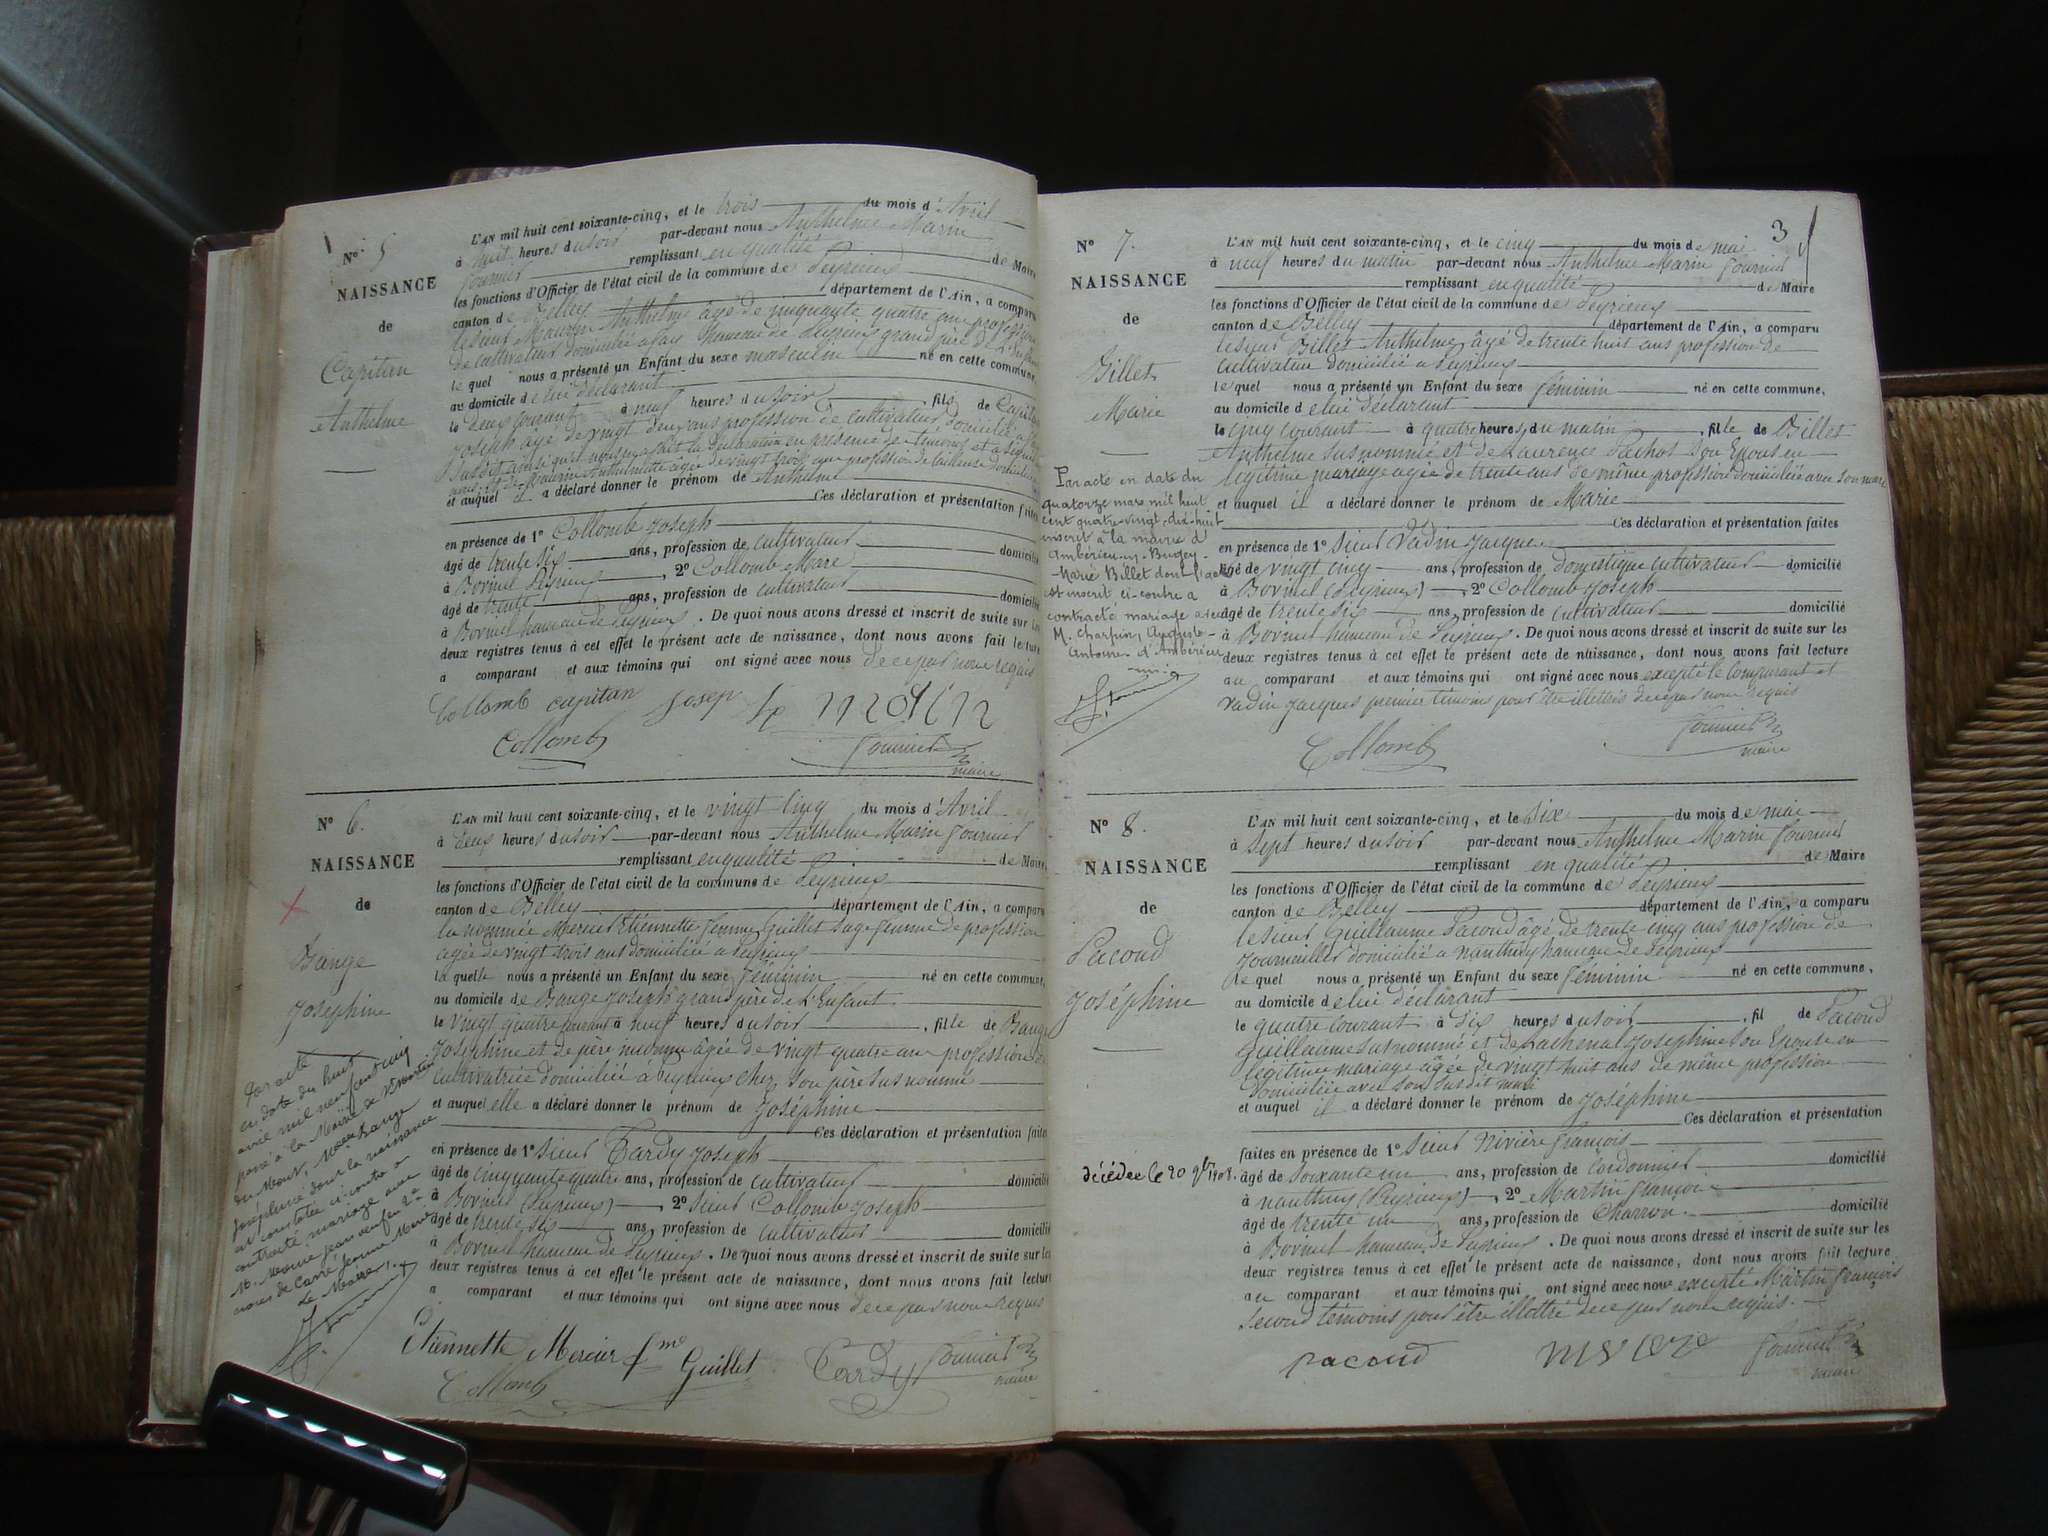 N° 5
NAISSANCE
de
Capitan
Anthelme
L'AN mil huit cent soixante-cinq, et le trois du mois d'Avril
à huit heures du soir par-devant nous Anthelme Marin
fournier remplissant en qualité de Maire
les fonctions d'Officier de l'état civil de la commune de Peyrieux
canton de Belley département de l'Ain, a comparu
le sieur Maurin Anthelme âgé de cinquante quatre ans profession
de cultivateur domicilié à hameau de Peyrieux grand père de l'Enfant
le quel nous a présenté un Enfant du sexe masculin né en cette commune,
au domicile de lui déclarant
le deux courant à neuf heures du soir, fils de Capitan
Joseph âgé de vingt deux ans profession de cultivateur domicilié
et de Maurin Anthelmette âgée de vingt trois ans profession de tailleuse
et auquel il a déclaré donner le prénom de Anthelme
Ces déclaration et présentation faites
en présence de 1° Collomb Joseph
âgé de trente six ans, profession de cultivateur domicilié
à Bovinel Peyrieux, 2° Collomb Marc
âgé de trente ans, profession de cultivateur domicilié
à Bovinel hameau de Peyrieux. De quoi nous avons dressé et inscrit de suite sur les
deux registres tenus à cet effet le présent acte de naissance, dont nous avons fait lecture
a comparant et aux témoins qui ont signé avec nous de ce par nous requis
Collomb capitan Josep
Collomb fournier
maire
N° 6.
NAISSANCE
de
Bange
Joséphine
L'AN mil huit cent soixante-cinq, et le vingt cinq du mois d'Avril
à deux heures du soir par-devant nous Anthelme Marin fournier
remplissant en qualité de Maire
les fonctions d'Officier de l'état civil de la commune de Peyrieux
canton de Belley département de l'Ain, a comparu
la nommée Mercier Etiennette femme Guillet sage femme de profession
âgée de vingt trois ans domiciliée à Peyrieux
la quelle nous a présenté un Enfant du sexe féminin né en cette commune,
au domicile de Bange Joseph grand père de l'Enfant
le vingt quatre courant à neuf heures du soir, fille de Bange
Joséphine et de père inconnu âgée de vingt quatre ans profession de
cultivatrice domiciliée à Peyrieux chez son père susnommé
et auquel elle a déclaré donner le prénom de Joséphine
Ces déclaration et présentation faites
en présence de 1° sieur Tardy Joseph
âgé de cinquante quatre ans, profession de cultivateur domicilié
à Bovinel (Peyrieux), 2° sieur Collomb Joseph
âgé de trente six ans, profession de cultivateur domicilié
à Bovinel hameau de Peyrieux. De quoi nous avons dressé et inscrit de suite sur les
deux registres tenus à cet effet le présent acte de naissance, dont nous avons fait lecture
a comparant et aux témoins qui ont signé avec nous de ce par nous requis
Par acte
en date du huit
avril mil neuf cent cinq
passé à la Mairie de
du Mont, Mlle Bange
Joséphine dont la naissance
est constatée ci-contre a
contracté mariage avec
M. Morne Jean veuf en 2e
noces de Carré Jeanne Marie
Le Maire,
Etiennette Mercier fme Guillet Tardy fournier
Collomb maire
3
N° 7.
NAISSANCE
de
Billet
Marie
L'AN mil huit cent soixante-cinq, et le cinq du mois de mai
à neuf heures du matin par-devant nous Anthelme Marin fournier
remplissant en qualité de Maire
les fonctions d'Officier de l'état civil de la commune de Peyrieux
canton de Belley département de l'Ain, a comparu
le sieur Billet Anthelme âgé de trente huit ans profession de
cultivateur domicilié à Peyrieux
le quel nous a présenté un Enfant du sexe féminin né en cette commune,
au domicile de lui déclarant
le cinq courant à quatre heures du matin, fille de Billet
Anthelme susnommé et de Laurence Pachot son Epouse en
légitime mariage agée de trente ans de même profession domiciliée avec son mari
et auquel il a déclaré donner le prénom de Marie
Ces déclaration et présentation faites
en présence de 1° sieur Vadin Jacques
âgé de vingt cinq ans, profession de domestique cultivateur domicilié
à Bovinel (Peyrieux), 2° Collomb Joseph
âgé de trente six ans, profession de cultivateur domicilié
à Bovinel hameau de Peyrieux. De quoi nous avons dressé et inscrit de suite sur les
deux registres tenus à cet effet le présent acte de naissance, dont nous avons fait lecture
au comparant et aux témoins qui ont signé avec nous excepté le comparant et
Vadin Jacques premier témoin pour être illettrés de ce par nous requis
Par acte en date du
quatorze mars mil huit
cent quatre-vingt-dix-huit
inscrit à la mairie d'
Ambérieu-en-Bugey
Marie Billet dont l'acte
est inscrit ci-contre a
contracté mariage avec
M. Charpin, Auguste
Antoine d'Ambérieu
Collomb fournier
maire
N° 8.
NAISSANCE
de
Pacoud
Joséphine
L'AN mil huit cent soixante-cinq, et le six du mois de mai
à sept heures du soir par-devant nous Anthelme Marin fournier
remplissant en qualité de Maire
les fonctions d'Officier de l'état civil de la commune de Peyrieux
canton de Belley département de l'Ain, a comparu
le sieur Guillaume Pacoud âgé de trente cinq ans profession de
journaillier domicilié à Nanthuy hameau de Peyrieux
le quel nous a présenté un Enfant du sexe féminin né en cette commune,
au domicile de lui déclarant
le quatre courant à six heures du soir, fil de Pacoud
Guillaume susnommé et de Lachenal Joséphine son Epouse en
légitime mariage âgée de vingt huit ans de même profession
domiciliée avec son susdit mari
et auquel il a déclaré donner le prénom de Joséphine
Ces déclaration et présentation
faites en présence de 1° sieur Rivière françois
âgé de soixante un ans, profession de Cordonnier domicilié
à Nanthuy (Peyrieux), 2° Martin françois
âgé de trente un ans, profession de Charron domicilié
à Bovinel hameau de Peyrieux. De quoi nous avons dressé et inscrit de suite sur les
deux registres tenus à cet effet le présent acte de naissance, dont nous avons fait lecture
au comparant et aux témoins qui ont signé avec nous excepté Martin françois
second témoins pour être illettré de ce par nous requis.
décédée le 20 9bre 1908.
pacoud fournier
maire